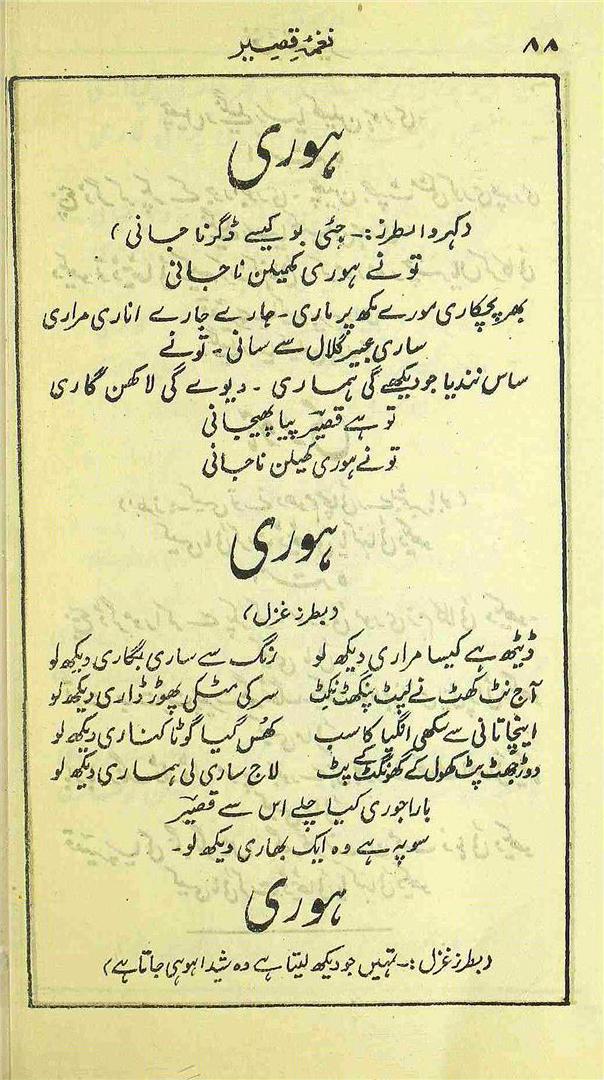 ۸۸ نغمۂ قصیر
ہوری
(کہروا بطرز:۔ جئی بو کیسے ڈگر نا جانی)
تو نے ہوری کھیلن نا جانی
بھر پچکاری مورے مکھ پر ماری ۔ جارے جارے اناری مراری
ساری عبیر گلال سے سانی ۔ تو نے
ساس نندیا جو دیکھے گی ہماری ۔ دیوے گی لاکھن گاری
تو ہے قصیرؔ پیا پھیجانی
تو نے ہوری کھیلن نا جانی
ہوری
(بطرز غزل)
ڈیٹھ ہے کیسا مراری دیکھ لو رنگ سے ساری بگاری دیکھ لو
آج نٹ کھٹ نے لپٹ پنکھٹ نکٹ سر کی مٹکی پھوڑ ڈاری دیکھ لو
اینچا تانی سے سکھی انگیا کا سب کھُس گیا گوٹا کناری دیکھ لو
دوڑ جھٹ پٹ کھول کے گھونگٹ کے پٹ لاج ساری لی ہماری دیکھ لو
بارا جوری کیا چلے اس سے قصیرؔ
سو پہ ہے وہ ایک بھاری دیکھ لو۔
ہوری
(بطرز غزل:۔ تمہیں جو دیکھ لیتا ہے وہ شیدا ہو ہی جاتا ہے)